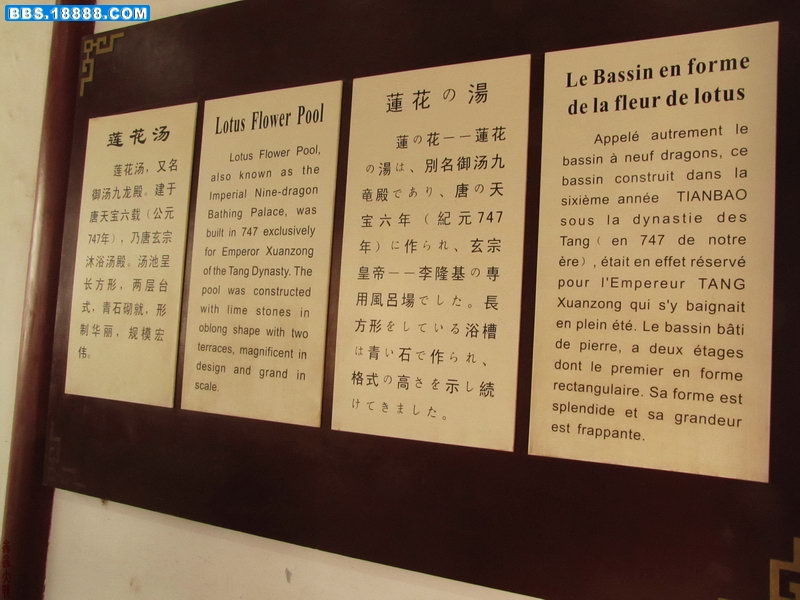 BBS.18888.COM
莲花汤
莲花汤，又名
御汤九龙殿。建于
唐天宝六载（公元
747年），乃唐玄宗
沐浴汤殿。汤池呈
长方形，两层台
式，青石砌就，形
制华丽，规模宏
伟。
Lotus Flower Pool
Lotus Flower Pool,
also known as the
Imperial Nine-dragon
Bathing Palace, was
built in 747 exclusively
for Emperor Xuanzong
of the Tang Dynasty. The
pool was constructed
with lime stones in
oblong shape with two
terraces, magnificent in
design and grand in
scale.
蓮花の湯
蓮の花－－蓮花
の湯は、別名御汤九
竜殿であり、唐の天
宝六年（紀元747
年）に作られ、玄宗
皇帝－－李隆基の専
用風呂場でした。長
方形をしている浴槽
は青い石で作られ、
格式の高さを示し続
けてきました。
Le Bassin en forme
de la fleur de lotus
Appelé autrement le
bassin à neuf dragons, ce
bassin construit dans la
sixième année TIANBAO
sous la dynastie des
Tang ( en 747 de notre
ère) , était en effet réservé
pour l'Empereur TANG
Xuanzong qui s'y baignait
en plein été. Le bassin bâti
de pierre, a deux étages
dont le premier en forme
rectangulaire. Sa forme est
splendide et sa grandeur
est frappante.